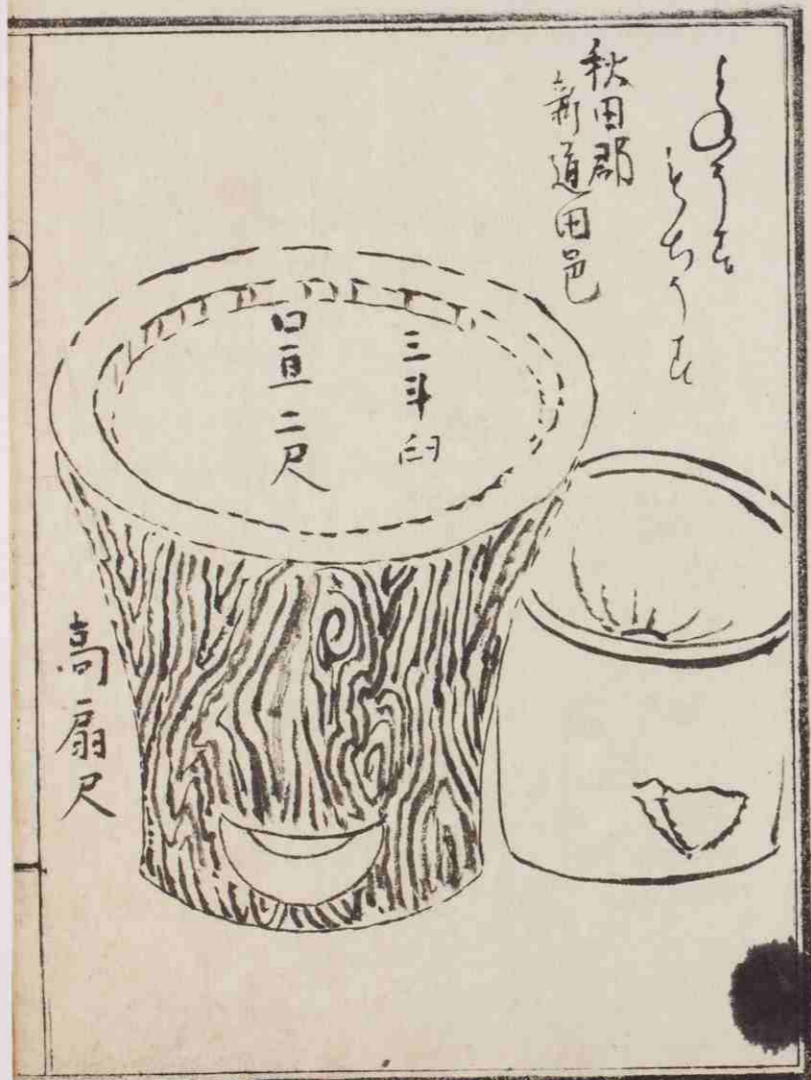 もちうす
秋田郡
新道田邑
三斗臼
口亘二尺
高扇尺